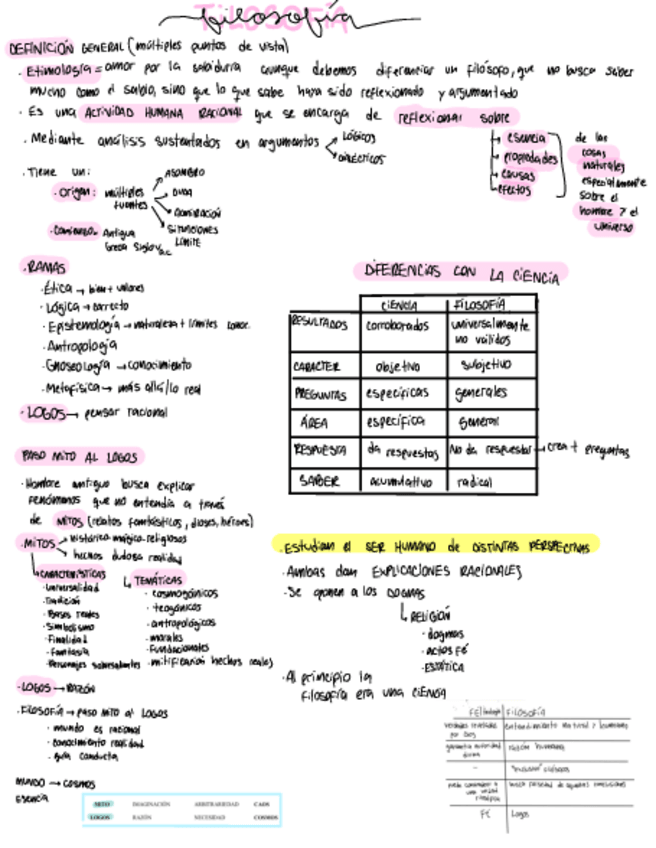 filosofía
DEFINICIÓN GENERAL (múltiples puntos de vista)
· Etimología = amor por la sabidurra aunque debemos diferenciar un filósofo, que no busca saber
mucho como el sabio, sino que lo que sabe haya sido reflexionado y argumentado
· Es una ACTIVIDAD HUMANA RACIONAL que se encarga de reflexionar sobre
esencia
propiedades
causas
efectos
de las
cosas
naturales
especialmente
sobre el
hombre y el
universo
· Mediante análisis sustentados en argumentos
LÓGICOS
DIALÉCTICOS
· Tiene un:
· origen: múltiples
fuentes
ASOMBRO
DUDA
ADMIRACIÓN
SITUACIONES
LÍMITE
· Comienzo: Antigua
Grecia Siglo V a.C
· RAMAS
· Ética → bien + valores
· Lógica → correcto
· Epistemología → naturaleza + límites conoc.
· Antropología
· Gnoseología → conocimiento
· Metafísica → más allá/lo real
· LOGOS → pensar racional
DIFERENCIAS CON LA CIENCIA
CIENCIA FILOSOFÍA
RESULTADOS corroborados universalmente
no válidos
CARACTER objetivo subjetivo
PREGUNTAS específicas generales
ÁREA específica General
RESPUESTA da respuestas No da respuestas → crea + preguntas
SABER acumulativo radical
PASO MITO AL LOGOS
· Hombre antiguo busca explicar
fenómenos que no entendía a través
de MITOS (relatos fantásticos, dioses, héroes)
· MITOS
histórica mágico-religiosos
hechos dudosa realidad
CARACTERÍSTICAS
· Universalidad
· Tradición
· Bases reales
· Simbolismo
· Finalidad
· Fantasía
· Personajes sobresalientes
TEMÁTICAS
· cosmogónicos
· teogónicos
· antropológicos
· morales
· Fundacionales
· mitificación hechos reales
· LOGOS → RAZÓN
· FILOSOFÍA → PASO MITO al LOGOS
· mundo es racional
· conocimiento realidad
· guía conducta
MUNDO → COSMOS
ESENCIA
MITO IMAGINACIÓN ARBITRARIEDAD CAOS
LOGOS RAZÓN NECESIDAD COSMOS
· Estudian el SER HUMANO de DISTINTAS PERSPECTIVAS
· Ambas dan EXPLICACIONES RACIONALES
· Se oponen a los DOGMAS
RELIGIÓN
· dogmas
· actos fé
· ESTÁTICA
· Al principio la
filosofía era una CIENCIA
FILOSOFÍA
por Dios
razón humana
FE Logos